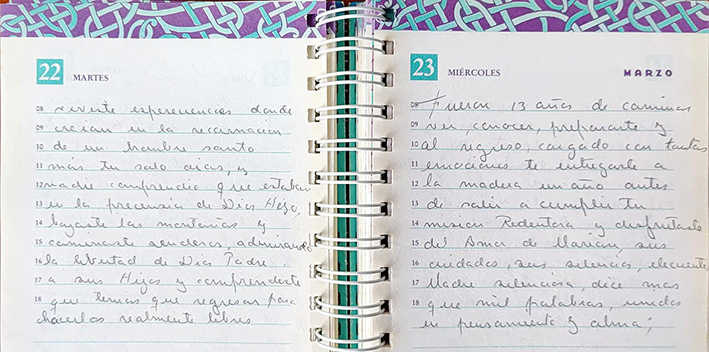 22 MARTES
08 reviviste experiencias donde
09 creian en la reencarnacion
10 de un hombre santo
11 más tu solo oias, y
12 nadie comprendio que estaban
13 en la presencia de Dios Hijo,
14 bajaste las montañas y
15 caminaste senderos, admirando
16 la libertad de Dios Padre.
17 a sus Hijos y comprendiste
18 que tenias que regresar para
hacerlos realmente libres
23 MIÉRCOLES MARZO
08 Fueron 13 años de caminar
09 ver, conocer, prepararte y
10 al regreso, cargado con tantas
11 emociones te entregaste a
12 la madera un año antes
13 de salir a cumplir tu
14 mision Redentora y disfrutaste
15 del Amor de Mariam, sus
16 cuidados, sus silencios, elocuentes
17 Madre silenciosa, dice mas
18 que mil palabras, unidos
en pensamiento y alma,